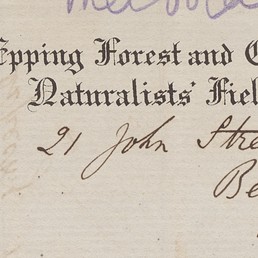 Epping Forest and C
Naturalists' Fiel
21 John Stre
Be